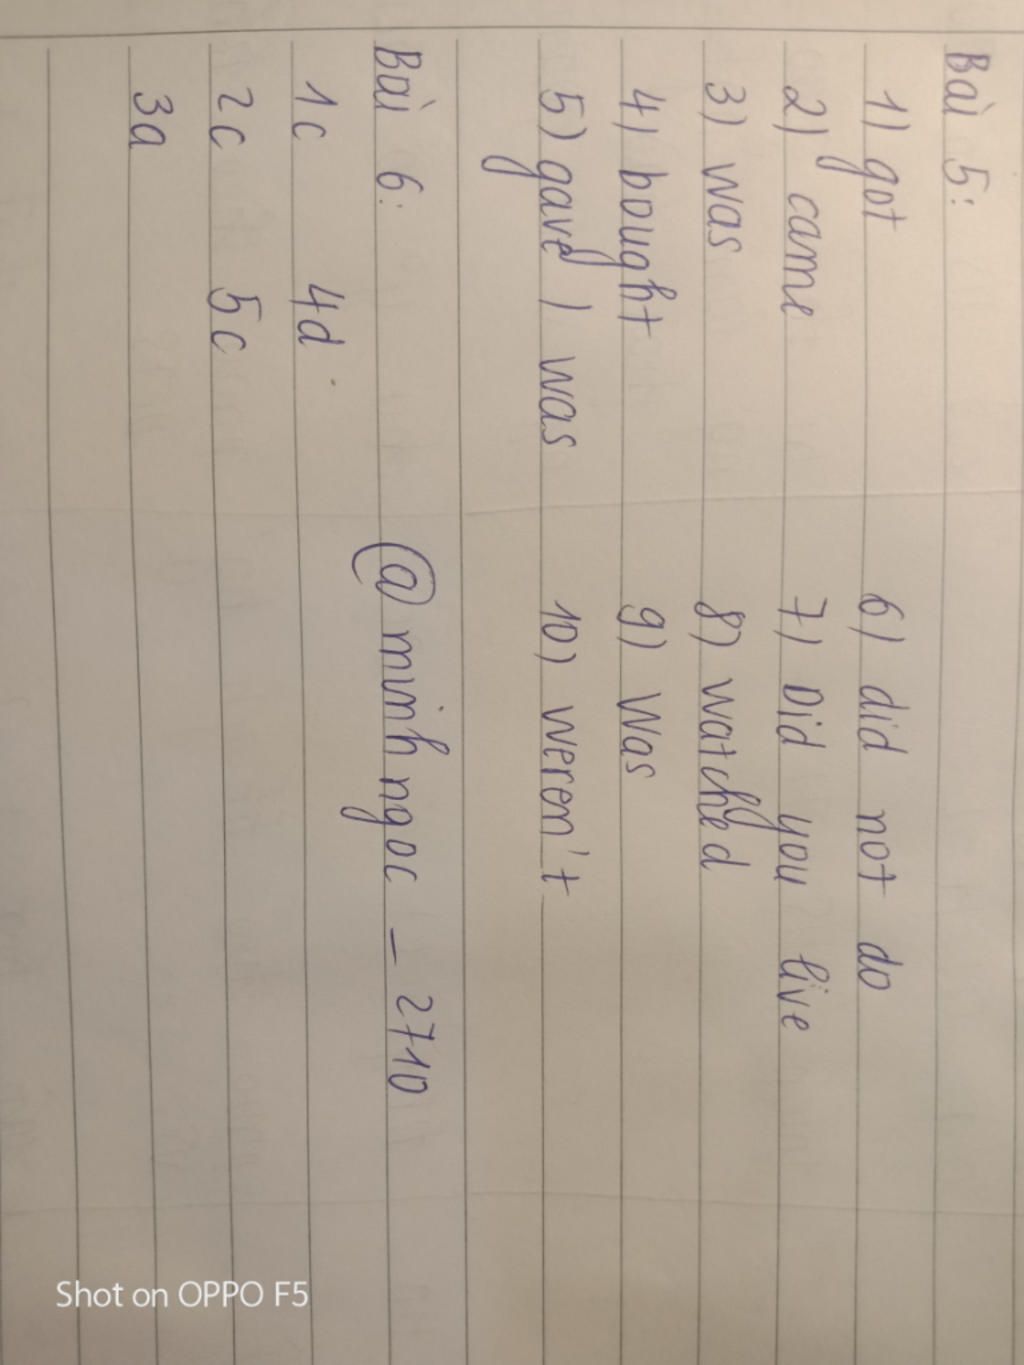 Bài 5:
1) got 6) did not do
2) came 7) Did you live
3) was 8) watched
4) bought 9) Was
5) gave / was 10) weren't
Bài 6:
1c 4d
2c 5c
3a
@minhngoc - 2710
Shot on OPPO F5